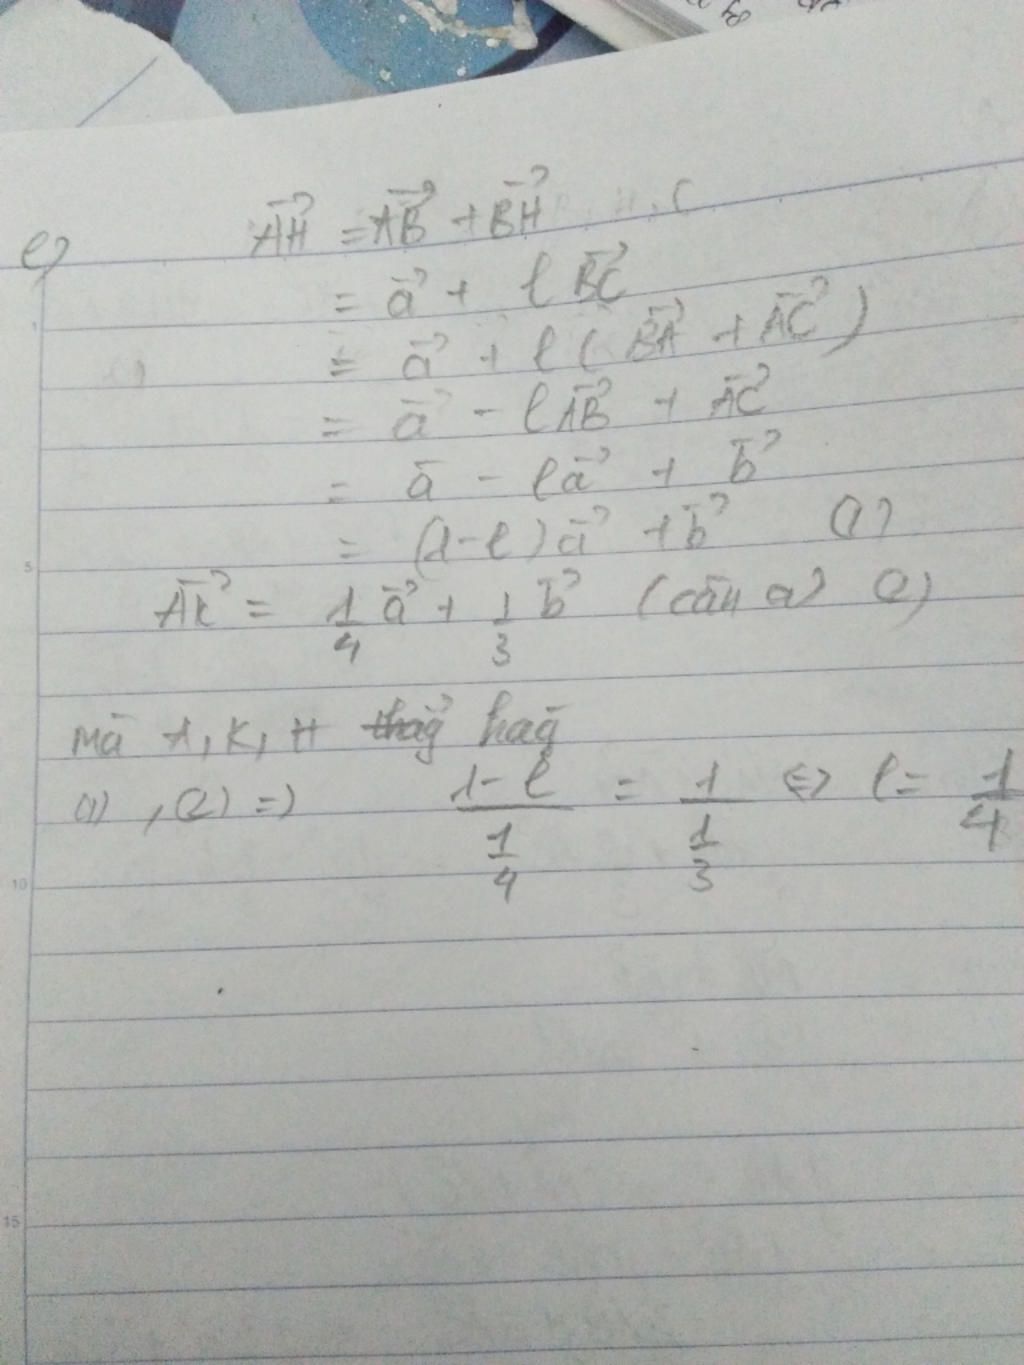 e) AH⃗ = AB⃗ + BH⃗
= a⃗ + l BC⃗
= a⃗ + l ( BA⃗ + AC⃗ )
= a⃗ - l AB⃗ + AC⃗
= a⃗ - l a⃗ + b⃗
= (1-l) a⃗ + b⃗ (1)
AK⃗ = 1/4 a⃗ + 1/3 b⃗ (câu a) (2)
mà A, K, H hàg
(1), (2) => (1-l)/(1/4) = 1/(1/3) <=> l = 1/4
5
10
15